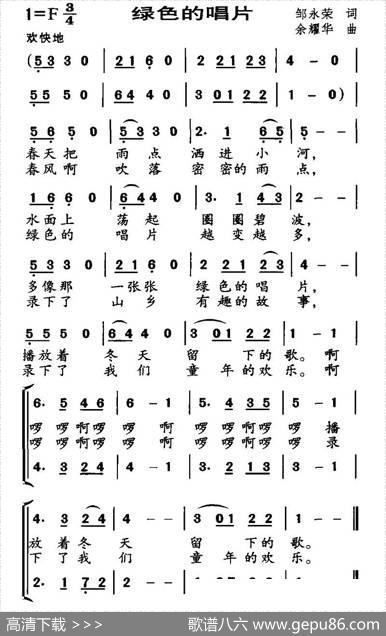 1=F 3/4 绿色的唱片 邹永荣 词
余耀华 曲
欢快地
(5 3 3 0 | 2 1 6 0 | 2 2 1 2 3 | 4 - 0 |
5 5 5 0 | 6 4 4 0 | 3 0 1 2 2 | 1 - 0)|
5 6 5 0 | 5 3 3 0 | 2· 1 6 5 | 5 - - |
春天把 雨点 洒进小河,
春风啊 吹落 密密的雨点,
1 6 6 0 | 6 4 4 0 | 3· 1 4 3 | 2 - - |
水面上 荡起 圈圈碧波,
绿色的 唱片 越变越多,
5 3 3 0 | 2 1 6 0 | 2 2 1 2 3 | 4 - - |
多像那 一张张 绿色的唱片,
录下了 山乡 有趣的故事,
5 5 5 0 | 6 4 4 0 | 3 0 1 2 2 | 1 - 1 |
播放着 冬天 留下的歌。啊
录下了 我们 童年的欢乐。啊
6· 5 4 6 | 6 - 1 | 5· 4 3 5 | 5 - 1 |
啰啰啊啰 啰啊 啰啰啊啰 啰播
啰啰啊啰 啰啊 啰啰啊啰 啰录
4· 3 2 4 | 4 - 1 | 3· 2 1 3 | 3 - 1 |
4· 3 2 4 | 4 - - | 3 0 1 2 2 | 1 - - ‖
放着冬天 留下的歌。
下了我们 童年的欢乐。
2· 1 7 2 | 2 - -
高清下载 >>> 歌谱八六 www.gepu86.com